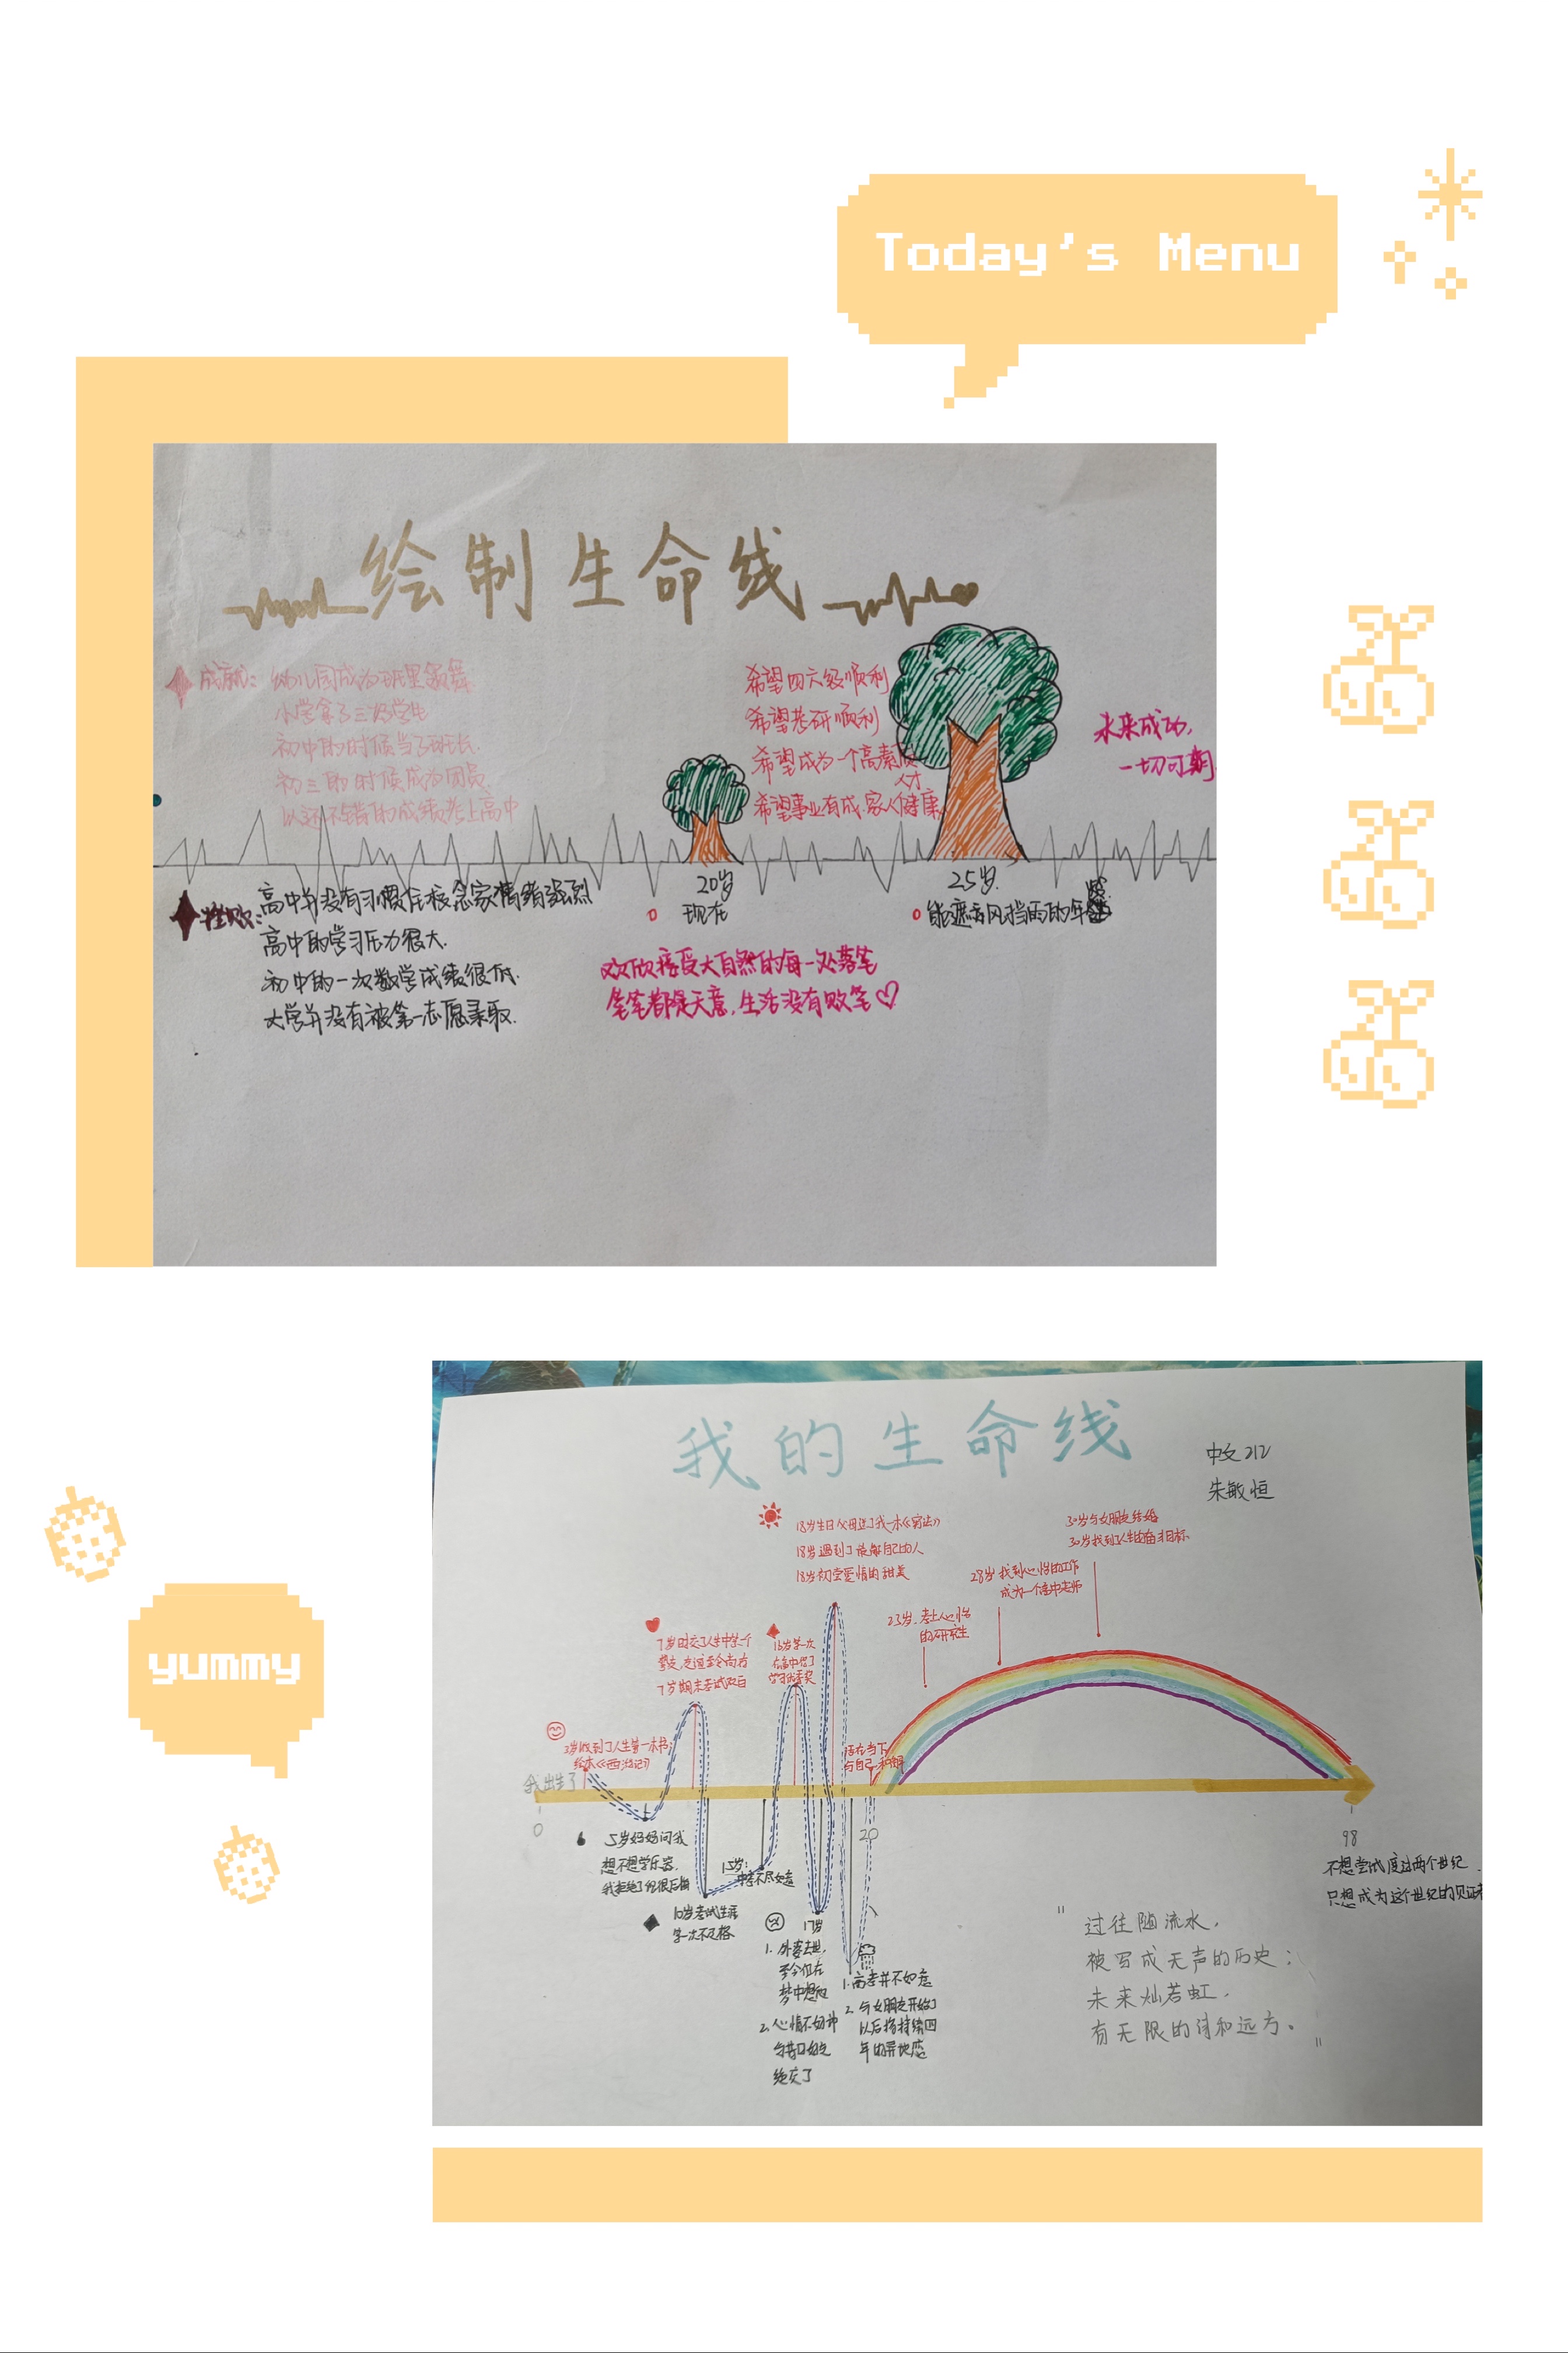 Today's Menu
绘制生命线
成就：幼儿园成为班里领舞
小学拿了三好学生
初中的时候当了班长.
初三的时候成为团员.
以还不错的成绩考上高中
希望四六级顺利
希望考研顺利
希望成为一个高素质
人才
希望事业有成.家人健康
未来成功,
一切可期
20岁
现在
25岁.
能遮风挡雨的年
挫败：高中并没有习惯住校念家情绪强烈
高中的学习压力很大.
初中的一次数学成绩很低.
大学并没有被第一志愿录取.
欢欣接受大自然的每一处落笔
笔笔都是天意,生活没有败笔
我的生命线
中文212
朱敏恒
18岁生日父母送了我一本《宪法》
18岁遇到了能懂自己的人
18岁初尝爱情的甜美
30岁与女朋友结婚
30岁找到了人生的奋斗目标
28岁找到心怡的工作
成为一个高中老师
23岁.考上心怡
的研究生
7岁时交了人生中第一个
挚友,友谊至今尚存
7岁期末考试双百
16岁第一次
在高中得了
学习优秀奖
3岁收到了人生第一本书:
绘本《西游记》
活在当下
与自己和解
我出生了
0
20
98
5岁妈妈问我
想不想学乐器.
我拒绝了但很后悔
15岁:
中考不尽如意
10岁考试生涯
第一次不及格
17岁
1. 外婆去世,
至今仍在
梦中想起
2. 心情不好时
绝交了
1. 高考并不如意
2. 与女朋友开始了
以后将持续四
年的异地恋
不想尝试度过两个世纪
只想成为这个世纪的见证者
"过往随流水,
被写成无声的历史;
未来灿若虹,
有无限的诗和远方。"
yummy